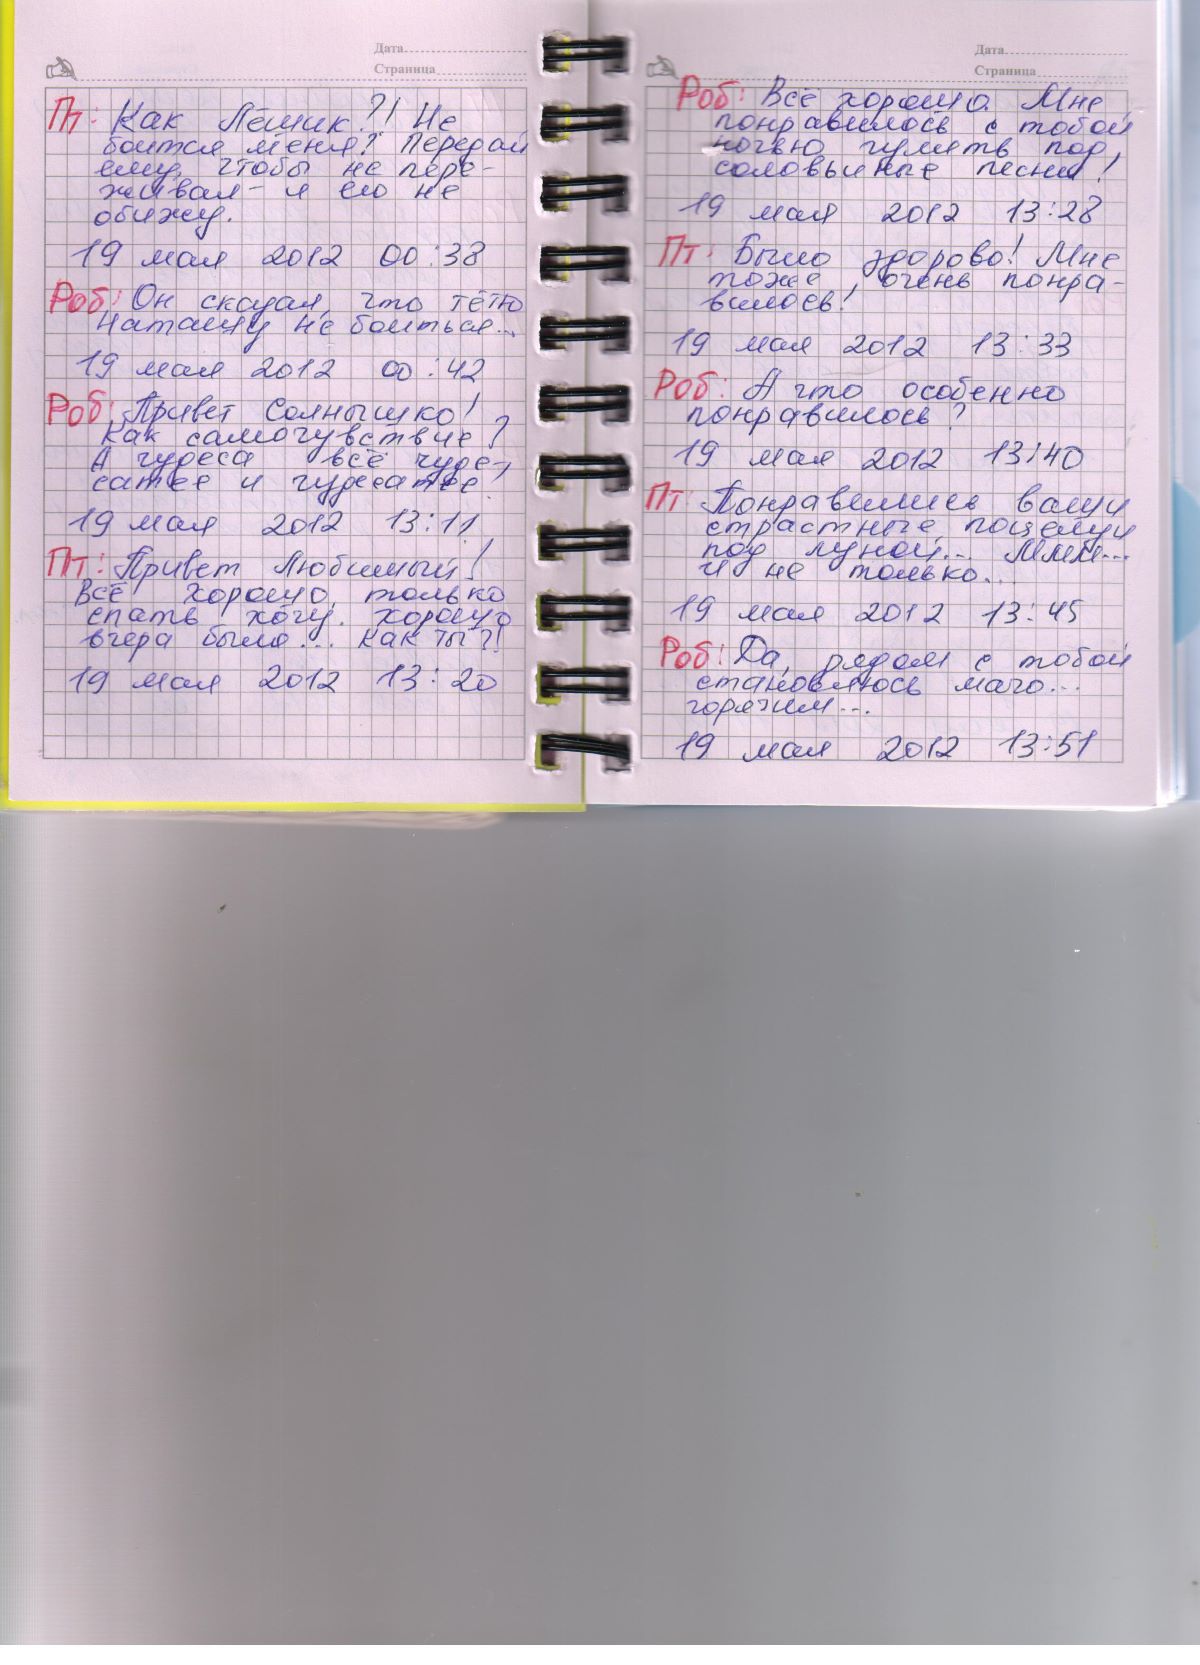 Дата
Страница
Пт: Как Лёшик?! Не
боится меня? Передай
ему, чтобы не пере-
живал - я его не
обижу.
19 мая 2012 00:38
Роб: Он сказал, что тётю
Наташу не боиться...
19 мая 2012 00:42
Роб: Привет Солнышко!
Как самочувствие?
А чудеса всё чуде-
сатее и чудесатее!
19 мая 2012 13:11
Пт: Привет Любимый!
Всё хорошо, только
спать хочу. Хорошо
вчера было... Как ты?!
19 мая 2012 13:20
Дата
Страница
Роб: Всё хорошо. Мне
понравилось с тобой
ночью гулять под
соловьиные песни!
19 мая 2012 13:28
Пт: Было здорово! Мне
тоже, очень понра-
вилось!
19 мая 2012 13:33
Роб: А что особенно
понравилось?
19 мая 2012 13:40
Пт: Понравились ваши
страстные поцелуи
под луной... Ммм...
и не только...
19 мая 2012 13:45
Роб: Да, рядом с тобой
становлюсь мачо...
горячим...
19 мая 2012 13:51